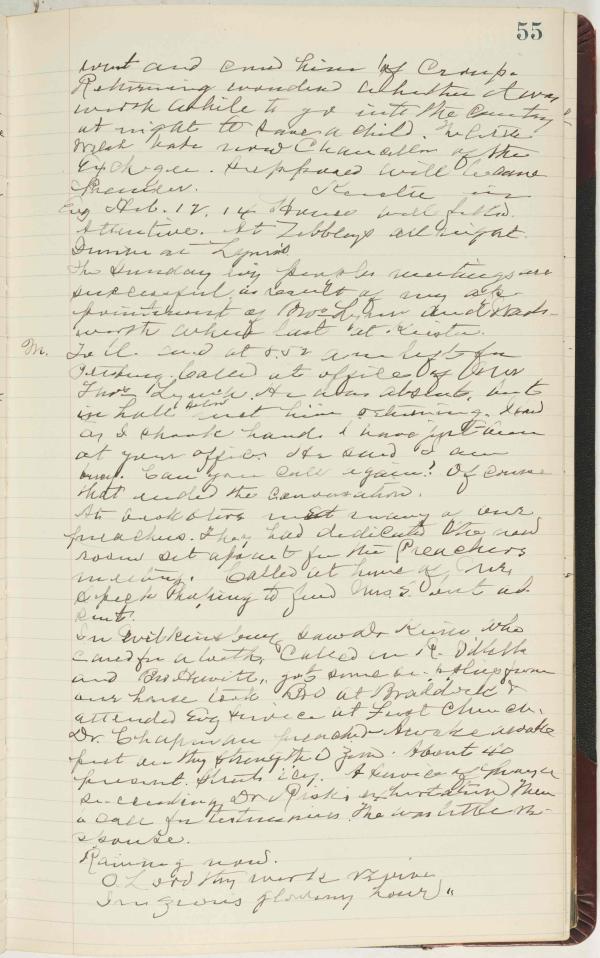 55
went and cured him of Croup.
Returning wondered whether it was
worth while to go into the Country
at night to save a child. The
Welsh babe now Chancellor of the
Exchequer. Supposed will become
Premier. in
Evg Heb. 12, 14 House well filled.
Attentive. At Zebbleys all night.
Dinner at Lynn's
The Sunday Evg peoples meetings are
successful as result of my ap-
pointment of Bros Lynn and Wads-
worth when last at
M. and at 8.52 a m left for
Pittsburg. Called at office of
Thos Lynch. He was absent, but
in hall met him returning. Said
as I shook hands I have just been
at your office. He said I am
busy. Can you call again? Of course
that ended the conversation.
At bookstore met many of our
preachers. They had dedicated the new
room set apart for the Preachers
meeting. Called at home of Mr.
to find Mrs S out ab-
sent.
In Wilkinsburg saw Dr who
cared for a tooth. Called on R.
and got some from
our house took B O at Braddock &
attended Evg service at First Church.
Dr. Chapman preached Awake awake
put on thy strength O Zion. About 40
present. Streets icy. A service of prayer
succeeding Dr exhortation Then
a call for testimonies. There was little re-
sponse.
Raining now.
O Lord thy work revive
In Zions gloomy hour"